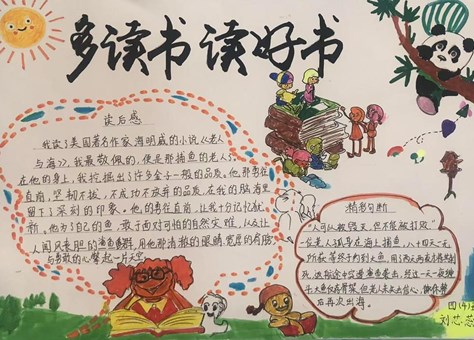 多读书读好书
读后感
我读了美国著名作家海明威的小说《老人
与海》。我最敬佩的，便是那捕鱼的老人。
在他的身上，我挖掘出了许多金子一般的品质，他那勇往
直前，坚韧不拔，不成功不放弃的品质，在我的脑海里
留下了深刻的印象。他的勇往直前，让我十分记忆犹
新。他为了自己的鱼，敢于面对可怕的自然灾难，从
人闻风丧胆的鲨鱼 用他那清澈的眼睛，宽厚的肩膀
与勇敢的心擎起一片天空
精彩句断
"人可以被毁灭，但不能被打败"
一位老人孤身在海上捕鱼，八十四天一
大鱼 但老人 信心，
后再次出海。
四(4)
刘芯蕊